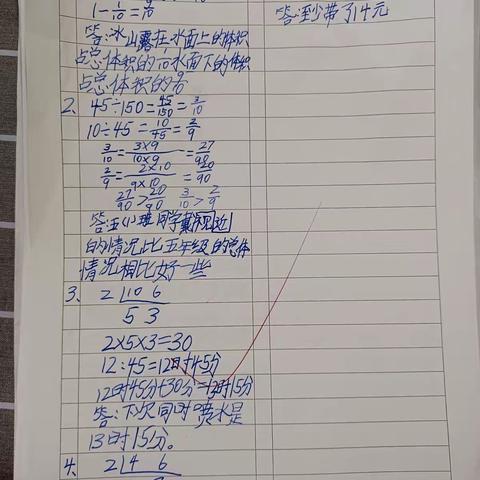 1-1/10=9/10
答:冰山露在水面上的体积
占总体积的1/10水面下的体积
占总体积的9/10
2、45÷150=45/150=3/10
10÷45=10/45=2/9
3/10=3×9/10×9=27/90
2/9=2×10/9×10=20/90
27/90>20/90 3/10>2/9
同学
的情况比五年级的总体
情况相比好一些
3、2 10 6
5 3
2×5×3=30
12:45=12时45分
12时45分+30分=13时15分
答:下次同时喷水是
13时15分。
4、2 4 6
答:至少带了14元